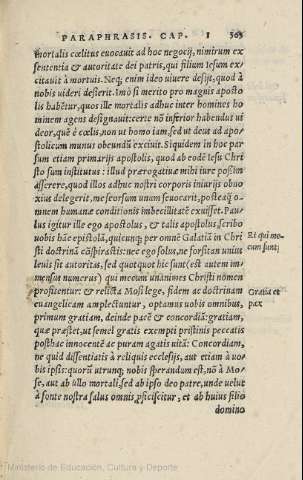 PARAPHRASIS. CAP. I 503
mortalis cœlitus euocauit ad hoc negocij, nimirum ex
sententia & autoritate dei patris, qui filium Iesum ex-
citauit à mortuis. Neq; enim ideo uiuere desijt, quod à
nobis uideri desierit. Imò si merito pro magnis aposto
lis habẽtur, quos ille mortalis adhuc inter homines ho
minem agens designauit: certe nõ inferior habendus ui
deor, quẽ è cœlis, non ut homo iam, sed ut deus ad apo-
stolicum munus obeundũ exciuit. Siquidem in hoc par
sum etiam primarijs apostolis, quod ab eodẽ Iesu Chri
sto sum institutus: illud prærogatiuæ mihi iure possim
asserere, quod illos adhuc nostri corporis iniurijs obno
xius delegerit, me seorsum unum seuocarit, posteaq̃ o-
mnem humanæ conditionis imbecillitatẽ exuisset. Pau-
lus igitur ille ego apostolus, & talis apostolus, scribo
uobis hãc epistolã, quicunq; per omnẽ Galatiã in Chri
sti doctrinã cõspirastis: nec ego solus, ne forsitan unius
leuis sit autoritas, sed quotquot hic sunt (est autem im-
mensus numerus) qui mecum unanimes Christi nomen
profitentur: & relicta Mosi lege, fidem ac doctrinam
euangelicam amplectuntur, optamus uobis omnibus,
primum gratiam, deinde pacẽ & concordiã: gratiam,
quæ præstet, ut semel gratis exempti pristinis peccatis
posthac innocentẽ ac puram agatis uitã: Concordiam,
ne quid dissentiatis à reliquis ecclesijs, aut etiam à uo-
bis ipsis: quorũ utrunq; nobis sperandum est, nõ à Mo-
se, aut ab ullo mortali, sed ab ipso deo patre, unde uelut
à fonte nostra salus omnis ꝓficiscitur, et ab huius filio
domino
Et qui me-
cum sunt;
Gratia et
pax
Ministerio de Educación, Cultura y Deporte